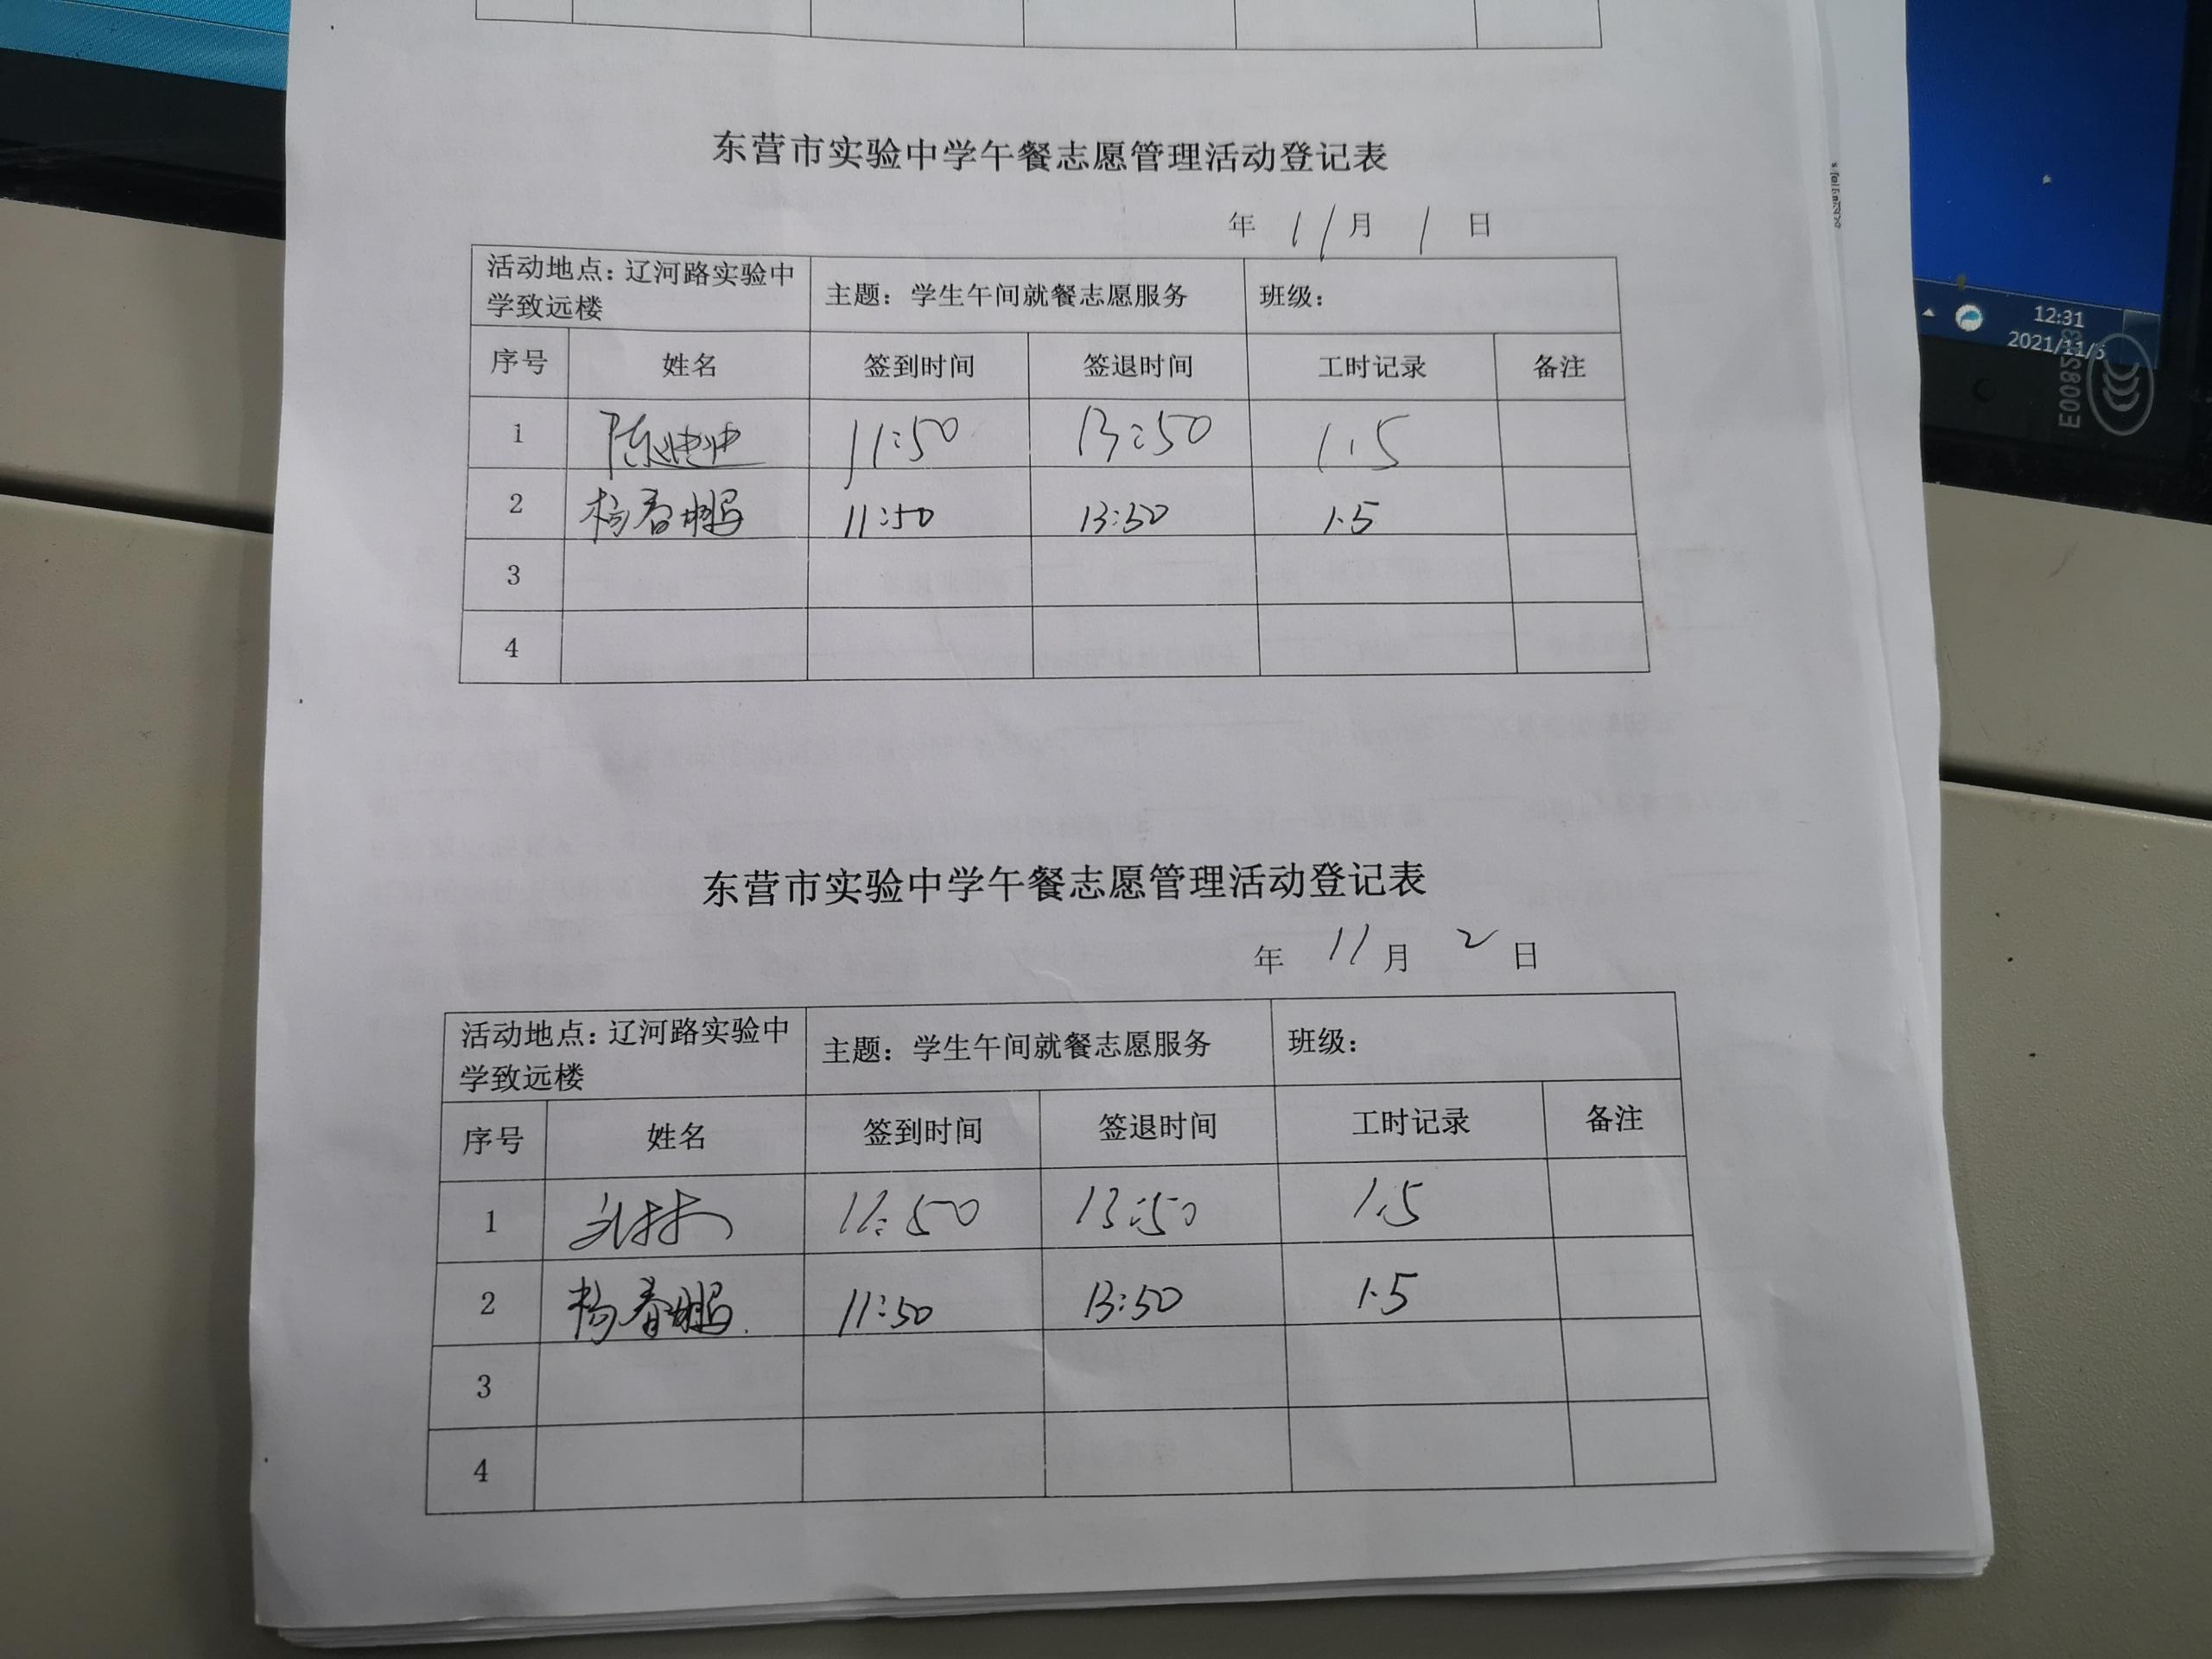 东营市实验中学午餐志愿管理活动登记表
年 11月 1 日
活动地点：辽河路实验中学致远楼 主题：学生午间就餐志愿服务 班级：
序号 姓名 签到时间 签退时间 工时记录 备注
1 11:50 13:50 1.5
2 杨春鹏 11:50 13:50 1.5
3
4
东营市实验中学午餐志愿管理活动登记表
年 11月 2 日
活动地点：辽河路实验中学致远楼 主题：学生午间就餐志愿服务 班级：
序号 姓名 签到时间 签退时间 工时记录 备注
1 11:50 13:50 1.5
2 杨春鹏 11:50 13:50 1.5
3
4
12:31
2021/11/5